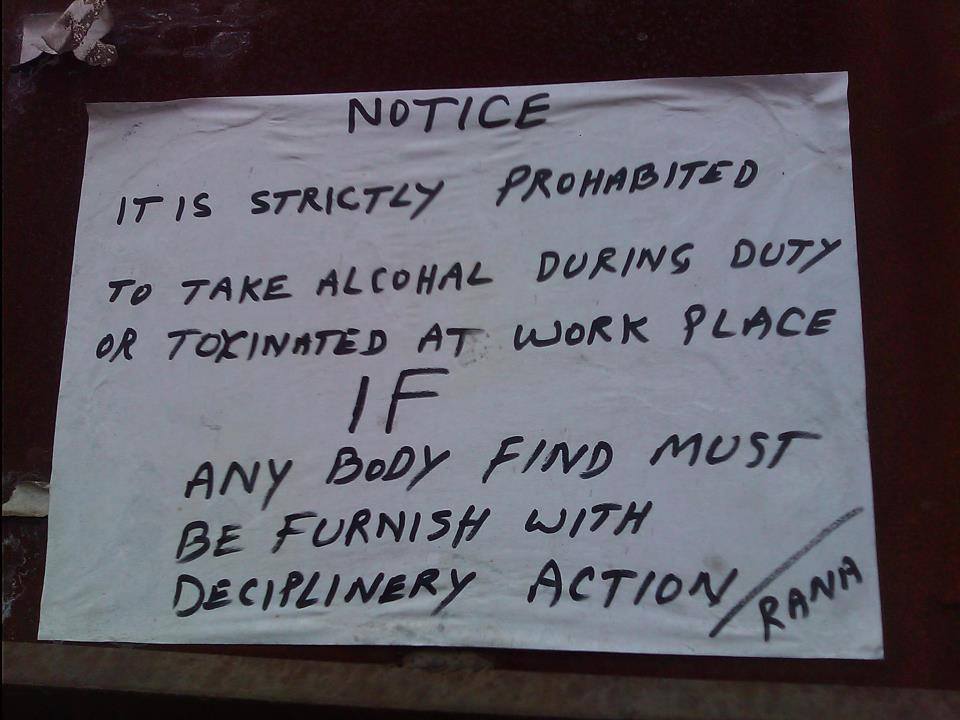 NOTICE
IT IS STRICTLY PROHABITED
TO TAKE ALCOHAL DURING DUTY
OR TOXINATED AT WORK PLACE
IF
ANY BODY FIND MUST
BE FURNISH WITH
DECIPLINERY ACTION/
RANA